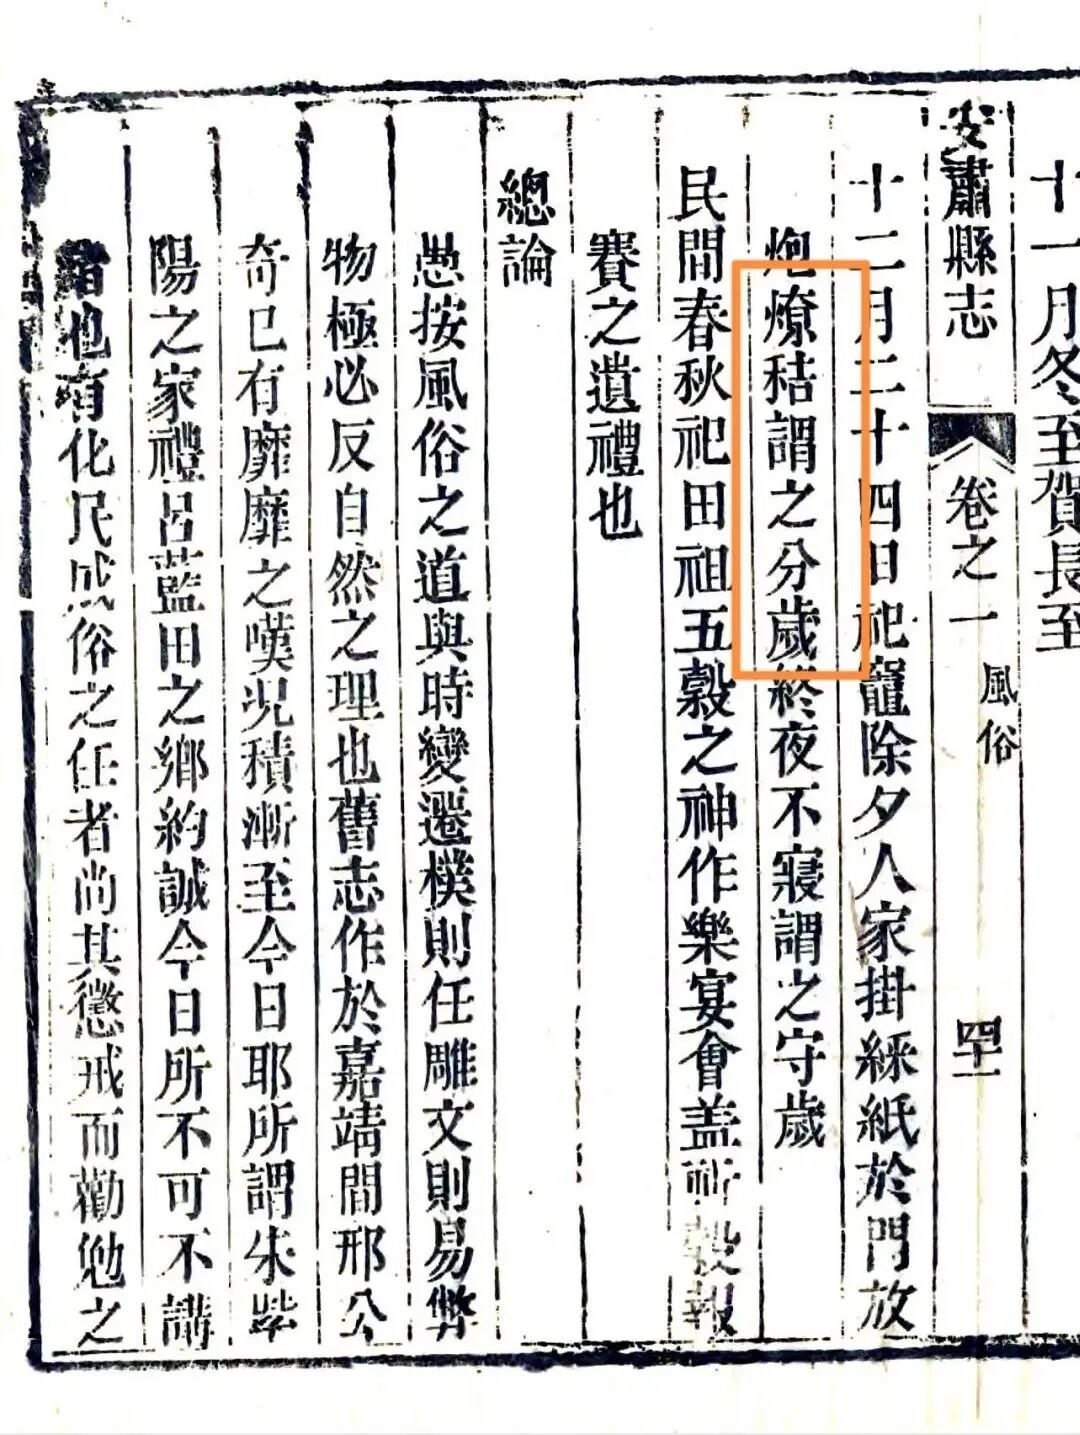 十一月冬至賀長至
安肅縣志
卷之一
風俗
四十一
十二月二十四日祀竈除夕人家掛綵紙於門放
炮燎秸謂之分歲終夜不寢謂之守歲
民間春秋祀田祖五穀之神作樂宴會蓋祈穀報
賽之遺禮也
總論
愚按風俗之道與時變遷樸則任雕文則易弊
物極必反自然之理也舊志作於嘉靖間邢公
奇已有靡靡之嘆況積漸至今日耶所謂朱紫
陽之家禮呂藍田之鄉約誠今日所不可不講
者也有化民成俗之任者尚其懲戒而勸勉之